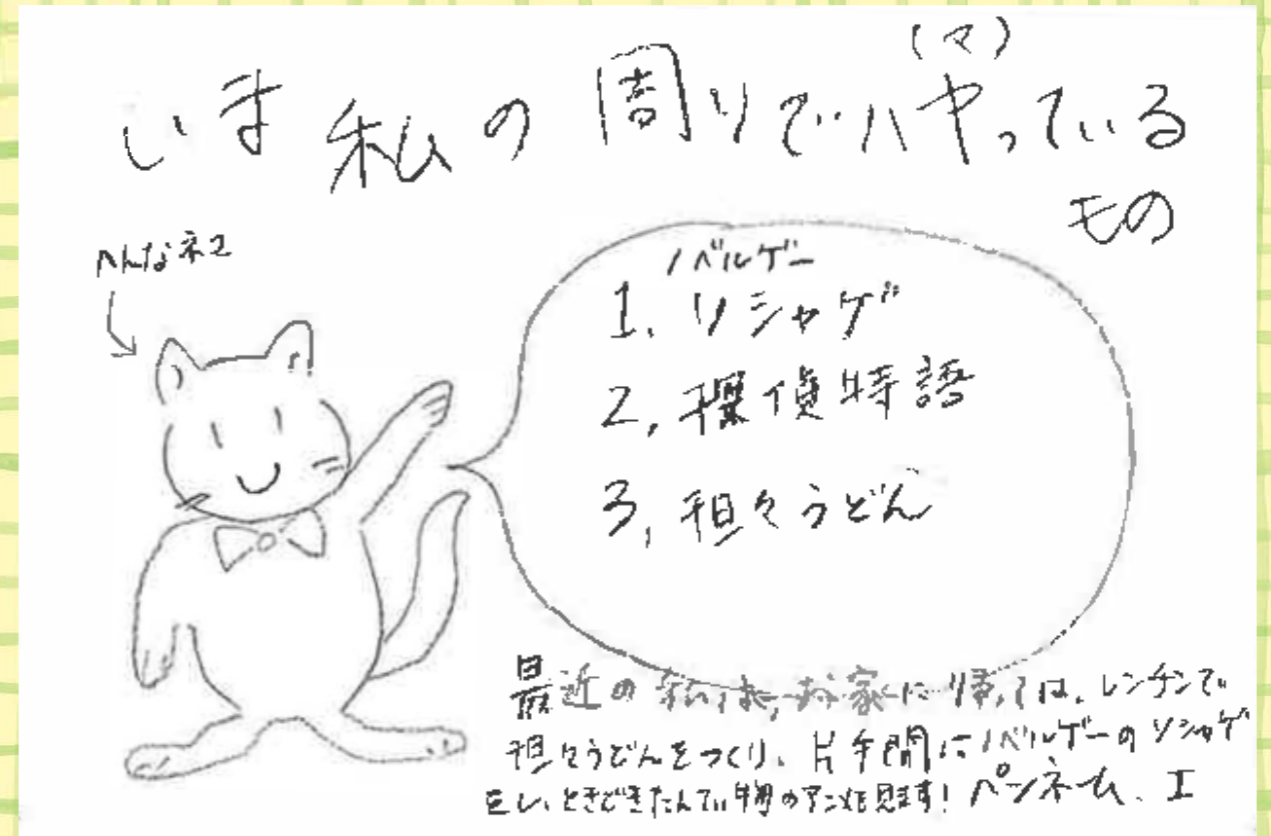 (マ)
いま私の周りでハヤっている
もの
へんなネコ
ノベルゲー
1. ソシャゲ
2, 探偵特語
3, 担々うどん
最近の私は、お家に帰っては、レンチンで
担々うどんをつくり、片手間にノベルゲーのソシャゲ
をし、ときどきたんてい物のアニメを見ます! ペンネーム、エ